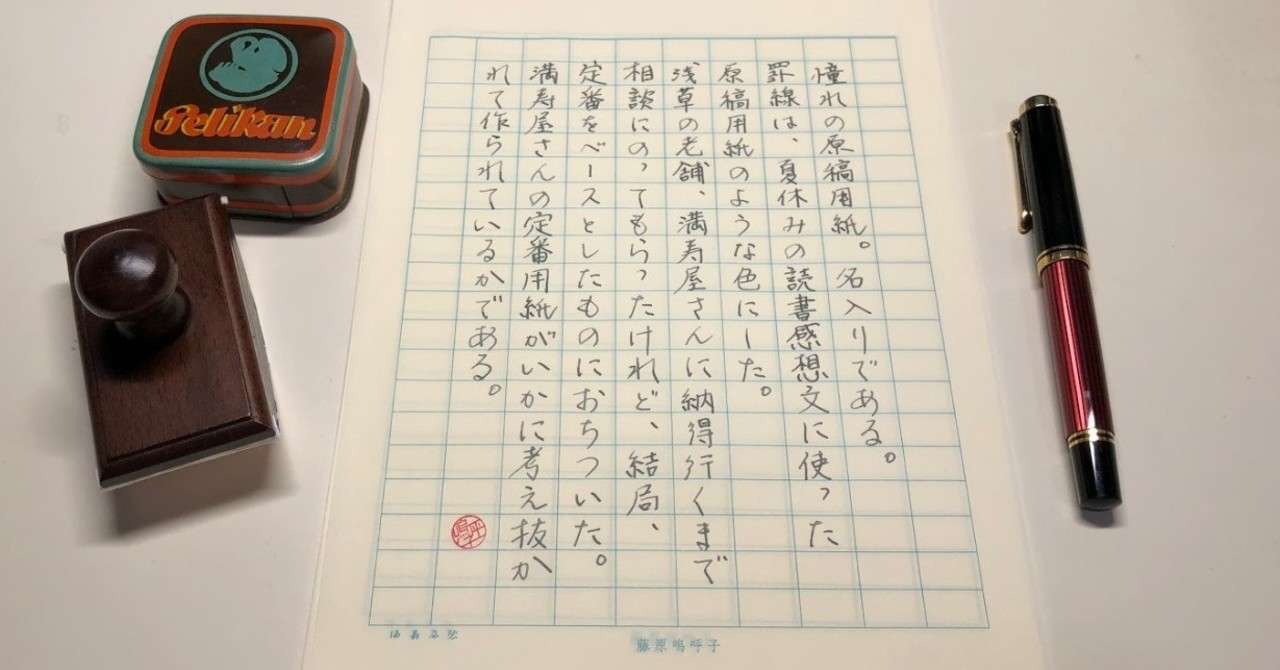 憧れの原稿用紙。名入りである。
罫線は、夏休みの読書感想文に使った
原稿用紙のような色にした。
浅草の老舗、満寿屋さんに納得行くまで
相談にのってもらったけれど、結局、
定番をベースとしたものにおちついた。
満寿屋さんの定番用紙がいかに考え抜か
れて作られているかである。
Pelikan
藤原嗚呼子